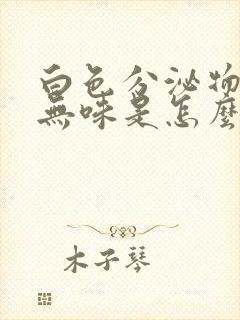 白色分泌物
無味是怎麼
木子琴